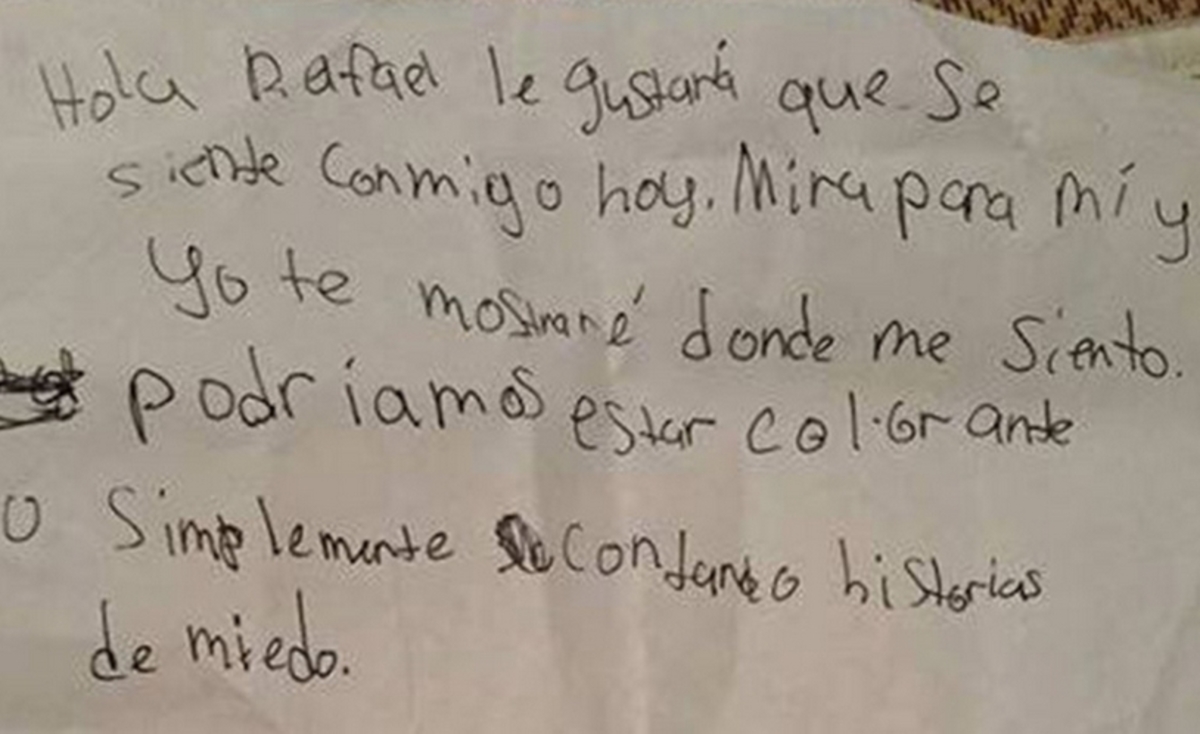 Hola Rafael le gustará que se
siente conmigo hoy. Mira para mí y
yo te mostraré donde me siento.
podriamos estar colorante
o simplemente contando historias
de miedo.